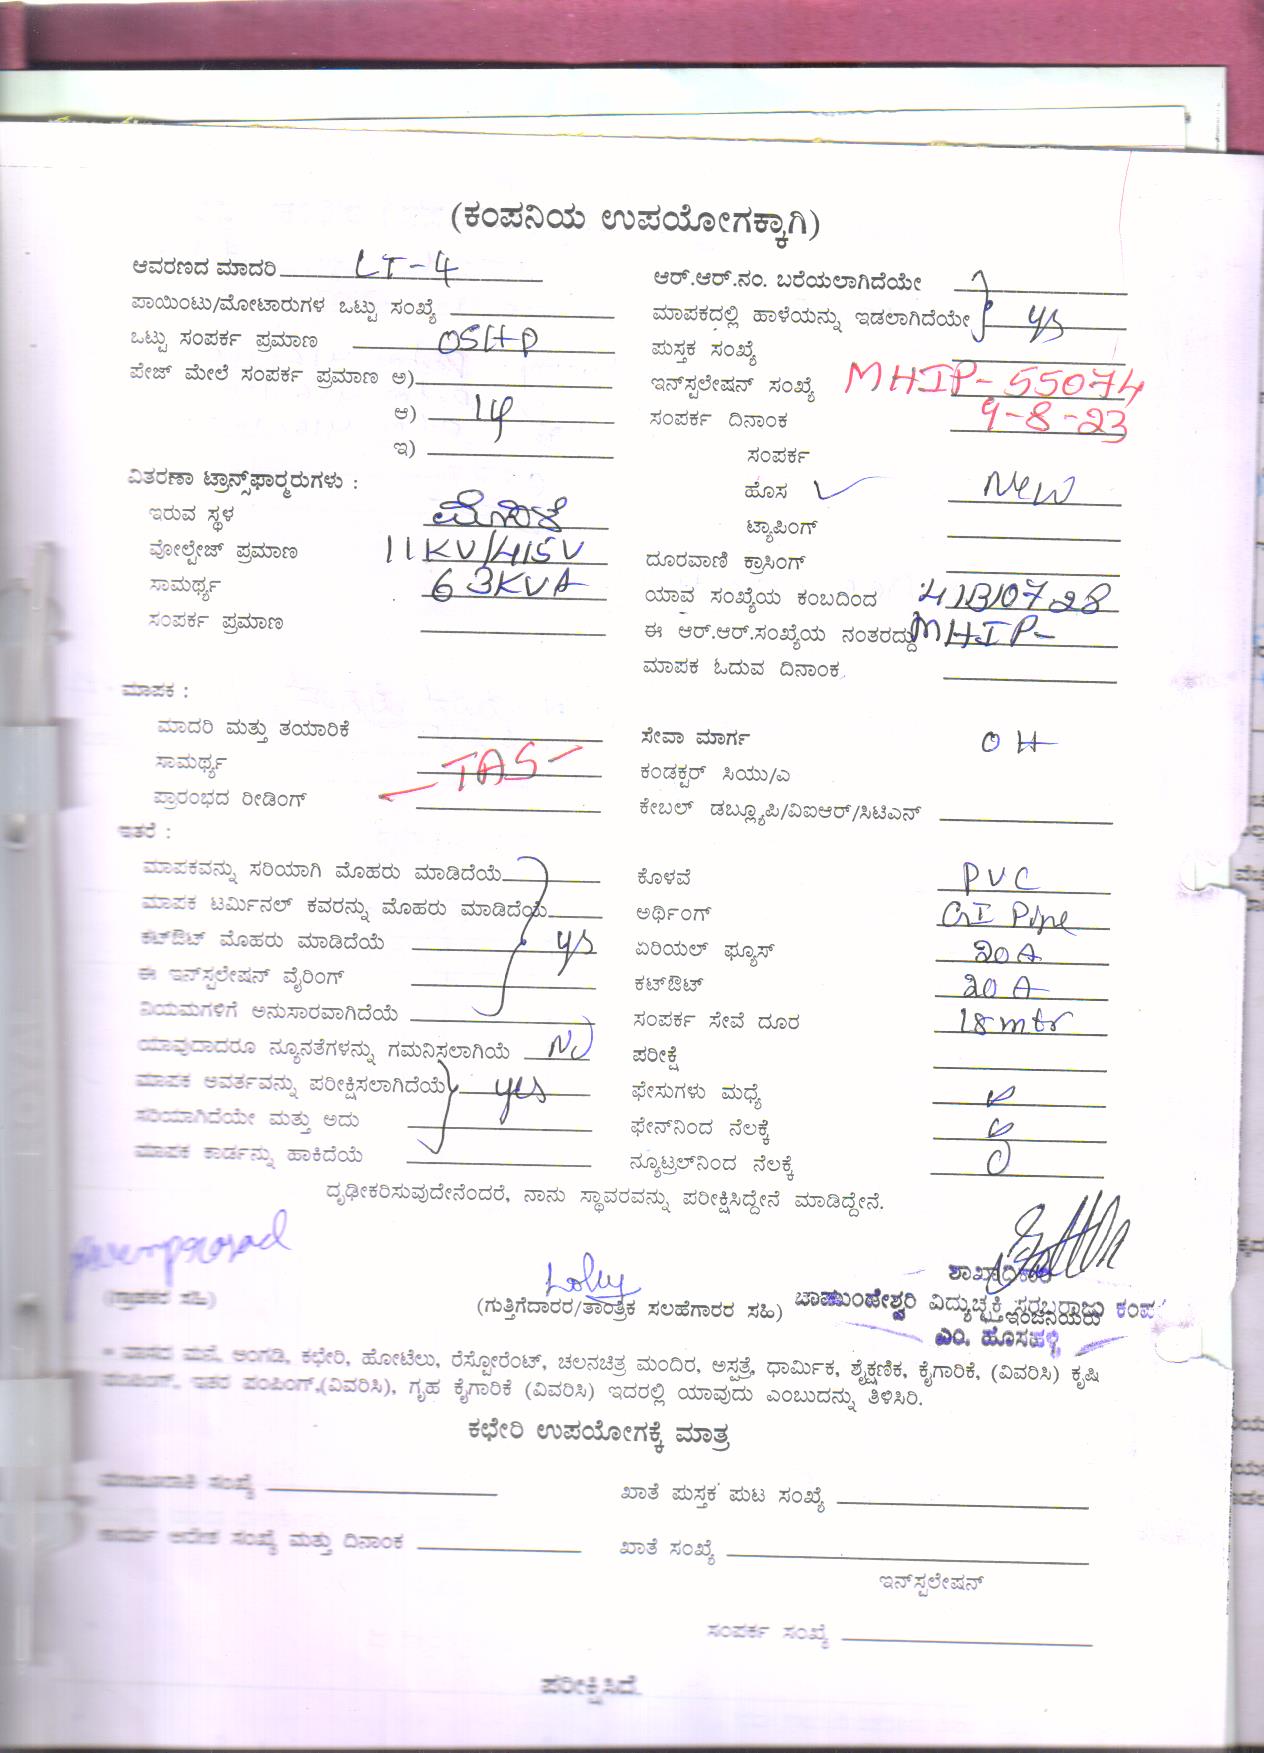 (ಕಂಪನಿಯ ಉಪಯೋಗಕ್ಕಾಗಿ)
ಆವರಣದ ಮಾದರಿ LT-4
ಪಾಯಿಂಟು/ಮೋಟಾರುಗಳ ಒಟ್ಟು ಸಂಖ್ಯೆ
ಒಟ್ಟು ಸಂಪರ್ಕ ಪ್ರಮಾಣ 05HP
ಪೇಜ್ ಮೇಲೆ ಸಂಪರ್ಕ ಪ್ರಮಾಣ ಅ)
ಆ)
ಇ)
ವಿತರಣಾ ಟ್ರಾನ್ಸ್‌ಫಾರ್‍ಮರುಗಳು :
ಇರುವ ಸ್ಥಳ
ವೋಲ್ಟೇಜ್ ಪ್ರಮಾಣ 11KV/415V
ಸಾಮರ್ಥ್ಯ 63KVA
ಸಂಪರ್ಕ ಪ್ರಮಾಣ
ಮಾಪಕ :
ಮಾದರಿ ಮತ್ತು ತಯಾರಿಕೆ
ಸಾಮರ್ಥ್ಯ — TAS —
ಪ್ರಾರಂಭದ ರೀಡಿಂಗ್
ಇತರೆ :
ಮಾಪಕವನ್ನು ಸರಿಯಾಗಿ ಮೊಹರು ಮಾಡಿದೆಯೆ
ಮಾಪಕ ಟರ್ಮಿನಲ್ ಕವರನ್ನು ಮೊಹರು ಮಾಡಿದೆಯೆ
ಕಟ್‌ಔಟ್ ಮೊಹರು ಮಾಡಿದೆಯೆ ys
ಈ ಇನ್‌ಸ್ಪಲೇಷನ್ ವೈರಿಂಗ್
ನಿಯಮಗಳಿಗೆ ಅನುಸಾರವಾಗಿದೆಯೆ
ಯಾವುದಾದರೂ ನ್ಯೂನತೆಗಳನ್ನು ಗಮನಿಸಲಾಗಿಯೆ NO
ಮಾಪಕ ಅವರ್ತವನ್ನು ಪರೀಕ್ಷಿಸಲಾಗಿದೆಯೆ yes
ಸರಿಯಾಗಿದೆಯೇ ಮತ್ತು ಅದು
ಮಾಪಕ ಕಾರ್ಡನ್ನು ಹಾಕಿದೆಯೆ
ಆರ್.ಆರ್.ನಂ. ಬರೆಯಲಾಗಿದೆಯೇ
ಮಾಪಕದಲ್ಲಿ ಹಾಳೆಯನ್ನು ಇಡಲಾಗಿದೆಯೇ ys
ಪುಸ್ತಕ ಸಂಖ್ಯೆ
ಇನ್‌ಸ್ಪಲೇಷನ್ ಸಂಖ್ಯೆ MHIP-55074
ಸಂಪರ್ಕ ದಿನಾಂಕ 9-8-23
ಸಂಪರ್ಕ
ಹೊಸ ✓ New
ಟ್ಯಾಪಿಂಗ್
ದೂರವಾಣಿ ಕ್ರಾಸಿಂಗ್
ಯಾವ ಸಂಖ್ಯೆಯ ಕಂಬದಿಂದ
ಈ ಆರ್.ಆರ್.ಸಂಖ್ಯೆಯ ನಂತರದ್ದು MHIP-
ಮಾಪಕ ಓದುವ ದಿನಾಂಕ.
ಸೇವಾ ಮಾರ್ಗ OH
ಕಂಡಕ್ಟರ್ ಸಿಯು/ಎ
ಕೇಬಲ್ ಡಬ್ಲ್ಯೂಪಿ/ವಿಐಆರ್/ಸಿಟಿಎನ್
ಕೊಳವೆ PVC
ಅರ್ಥಿಂಗ್ GI Pipe
ಏರಿಯಲ್ ಫ್ಯೂಸ್ 20A
ಕಟ್‌ಔಟ್ 20A
ಸಂಪರ್ಕ ಸೇವೆ ದೂರ 18mtr
ಪರೀಕ್ಷೆ
ಫೇಸುಗಳು ಮಧ್ಯೆ
ಫೇಸ್‌ನಿಂದ ನೆಲಕ್ಕೆ
ನ್ಯೂಟ್ರಲ್‌ನಿಂದ ನೆಲಕ್ಕೆ
ದೃಢೀಕರಿಸುವುದೇನೆಂದರೆ, ನಾನು ಸ್ಥಾವರವನ್ನು ಪರೀಕ್ಷಿಸಿದ್ದೇನೆ ಮಾಡಿದ್ದೇನೆ.
(ಗ್ರಾಹಕರ ಸಹಿ)
(ಗುತ್ತಿಗೆದಾರರ/ತಾಂತ್ರಿಕ ಸಲಹೆಗಾರರ ಸಹಿ)
ಶಾಖಾಧಿಕಾರಿ
ಚಾಮುಂಡೇಶ್ವರಿ ವಿದ್ಯುಚ್ಛಕ್ತಿ ಸರಬರಾಜು ಕಂಪ
ಇಂಜಿನಿಯರು
ಎಂ. ಹೊಸಹಳ್ಳಿ
* ವಾಸದ ಮನೆ, ಅಂಗಡಿ, ಕಛೇರಿ, ಹೋಟೆಲು, ರೆಸ್ಟೋರೆಂಟ್, ಚಲನಚಿತ್ರ ಮಂದಿರ, ಅಸ್ಪತ್ರೆ, ಧಾರ್ಮಿಕ, ಶೈಕ್ಷಣಿಕ, ಕೈಗಾರಿಕೆ, (ವಿವರಿಸಿ) ಕೃಷಿ
ಪಂಪಿಂಗ್, ಇತರ ಪಂಪಿಂಗ್,(ವಿವರಿಸಿ), ಗೃಹ ಕೈಗಾರಿಕೆ (ವಿವರಿಸಿ) ಇದರಲ್ಲಿ ಯಾವುದು ಎಂಬುದನ್ನು ತಿಳಿಸಿರಿ.
ಕಛೇರಿ ಉಪಯೋಗಕ್ಕೆ ಮಾತ್ರ
ಮಂಜೂರಾತಿ ಸಂಖ್ಯೆ
ಖಾತೆ ಪುಸ್ತಕ ಪುಟ ಸಂಖ್ಯೆ
ಕಾರ್ಯ ಆದೇಶ ಸಂಖ್ಯೆ ಮತ್ತು ದಿನಾಂಕ
ಖಾತೆ ಸಂಖ್ಯೆ
ಇನ್‌ಸ್ಪಲೇಷನ್
ಸಂಪರ್ಕ ಸಂಖ್ಯೆ
ಪರೀಕ್ಷಿಸಿದೆ.